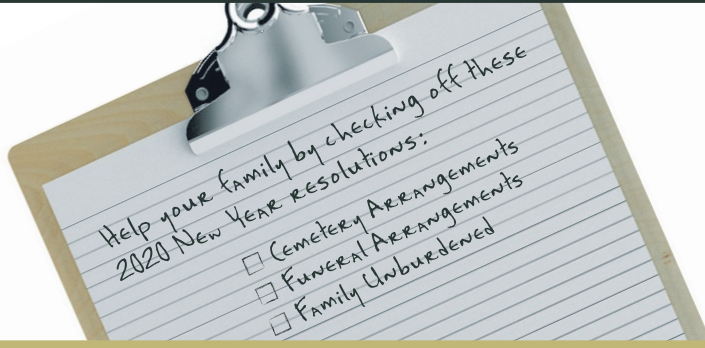 Help your family by checking off these
2020 New Year resolutions:
☐ Cemetery Arrangements
☐ Funeral Arrangements
☐ Family Unburdened